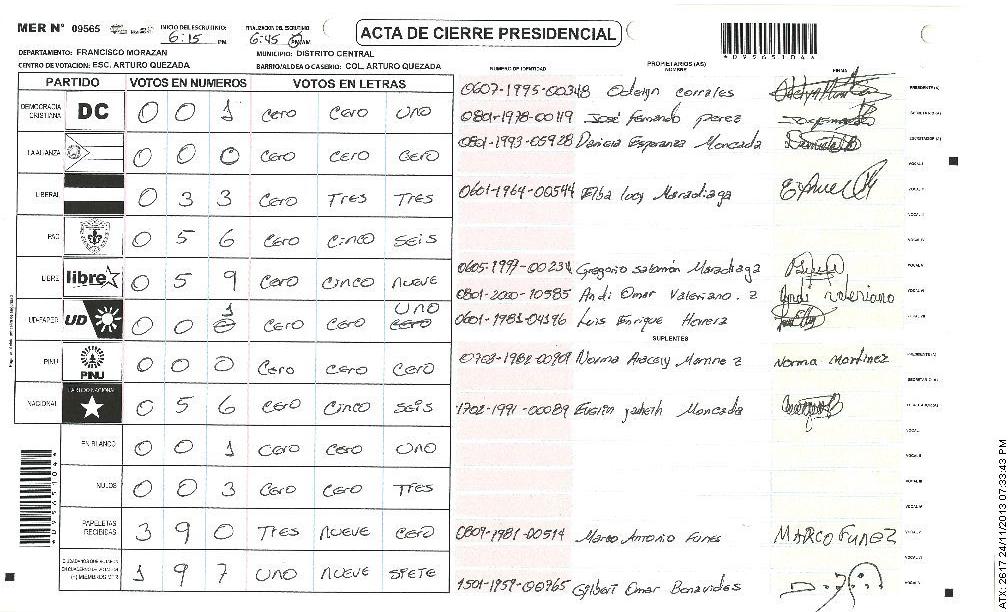 MER N° 09565 INICIO DEL ESCRUTINIO: 6:15 PM FINALIZACION DEL ESCRUTINIO 6:45 PM/AM
ACTA DE CIERRE PRESIDENCIAL
*09565104*
DEPARTAMENTO: FRANCISCO MORAZAN MUNICIPIO: DISTRITO CENTRAL
CENTRO DE VOTACION: ESC. ARTURO QUEZADA BARRIO/ALDEA O CASERIO: COL. ARTURO QUEZADA
PARTIDO VOTOS EN NUMEROS VOTOS EN LETRAS
DEMOCRACIA CRISTIANA DC 0 0 1 Cero Cero UNO
LA ALIANZA 0 0 0 Cero Cero Cero
LIBERAL 0 3 3 Cero Tres Tres
PAC 0 5 6 Cero Cinco Seis
LIBRE libre 0 5 9 Cero Cinco Nueve
UD-FAPER UD 0 0 1 Cero Cero UNO
PINU PINU 0 0 0 Cero Cero Cero
NACIONAL PARTIDO NACIONAL 0 5 6 Cero Cinco Seis
EN BLANCO 0 0 1 Cero Cero UNO
NULOS 0 0 3 Cero Cero Tres
PAPELETAS RECIBIDAS 3 9 0 Tres Nueve Cero
1 9 7 UNO Nueve SIETE
NÚMERO DE IDENTIDAD PROPIETARIOS (AS) NOMBRE FIRMA
0607-1995-00348 Odelyn Corrales PRESIDENTE (A)
0801-1978-00119 José Fernando Perez SECRETARIO (A)
0801-1993-05928 Daniela Esperanza Moncada ESCRUTADOR (A)
VOCAL I
0601-1964-00544 Elba Lucy Maradiaga VOCAL II
VOCAL III
VOCAL IV
Gregorio Salomón Maradiaga VOCAL V
0801-2000-10585 Andi Omar Valeriano. z Andi Valeriano VOCAL VI
0601-1983-04396 Luis Enrique Herrera VOCAL VII
SUPLENTES
Norma Aracely Martinez Norma Martinez PRESIDENTE (A)
SECRETARIO (A)
1702-1991-00089 Evelin Janeth Moncada ESCRUTADOR (A)
VOCAL I
VOCAL II
VOCAL III
VOCAL IV
0809-1981-00514 Marco Antonio Funes MARCO FUNEZ VOCAL V
VOCAL VI
1501-1959-00965 Gilbert Omar Benavides VOCAL VII
*09565104*
ATX: 2617 24/11/2013 07:33:43 PM